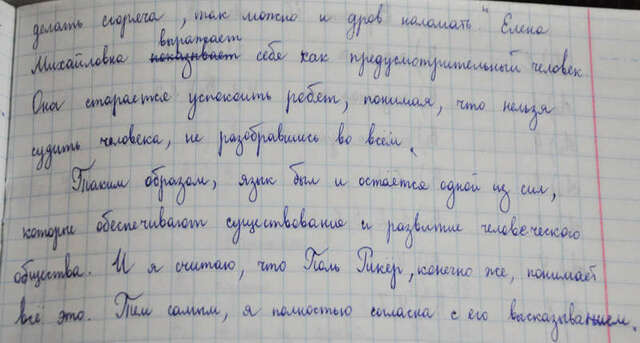 делать сгоряча, так можно и дров наломать" Елена
выражает
Михайловна показывает себя как предусмотрительный человек
Она старается успокоить ребят, понимая, что нельзя
судить человека, не разобравшись во всём.
Таким образом, язык был и остаётся одной из сил,
которые обеспечивают существование и развитие человеческого
общества. И я считаю, что Поль Рикер, конечно же, понимает
всё это. Тем самым, я полностью согласна с его высказыванием.